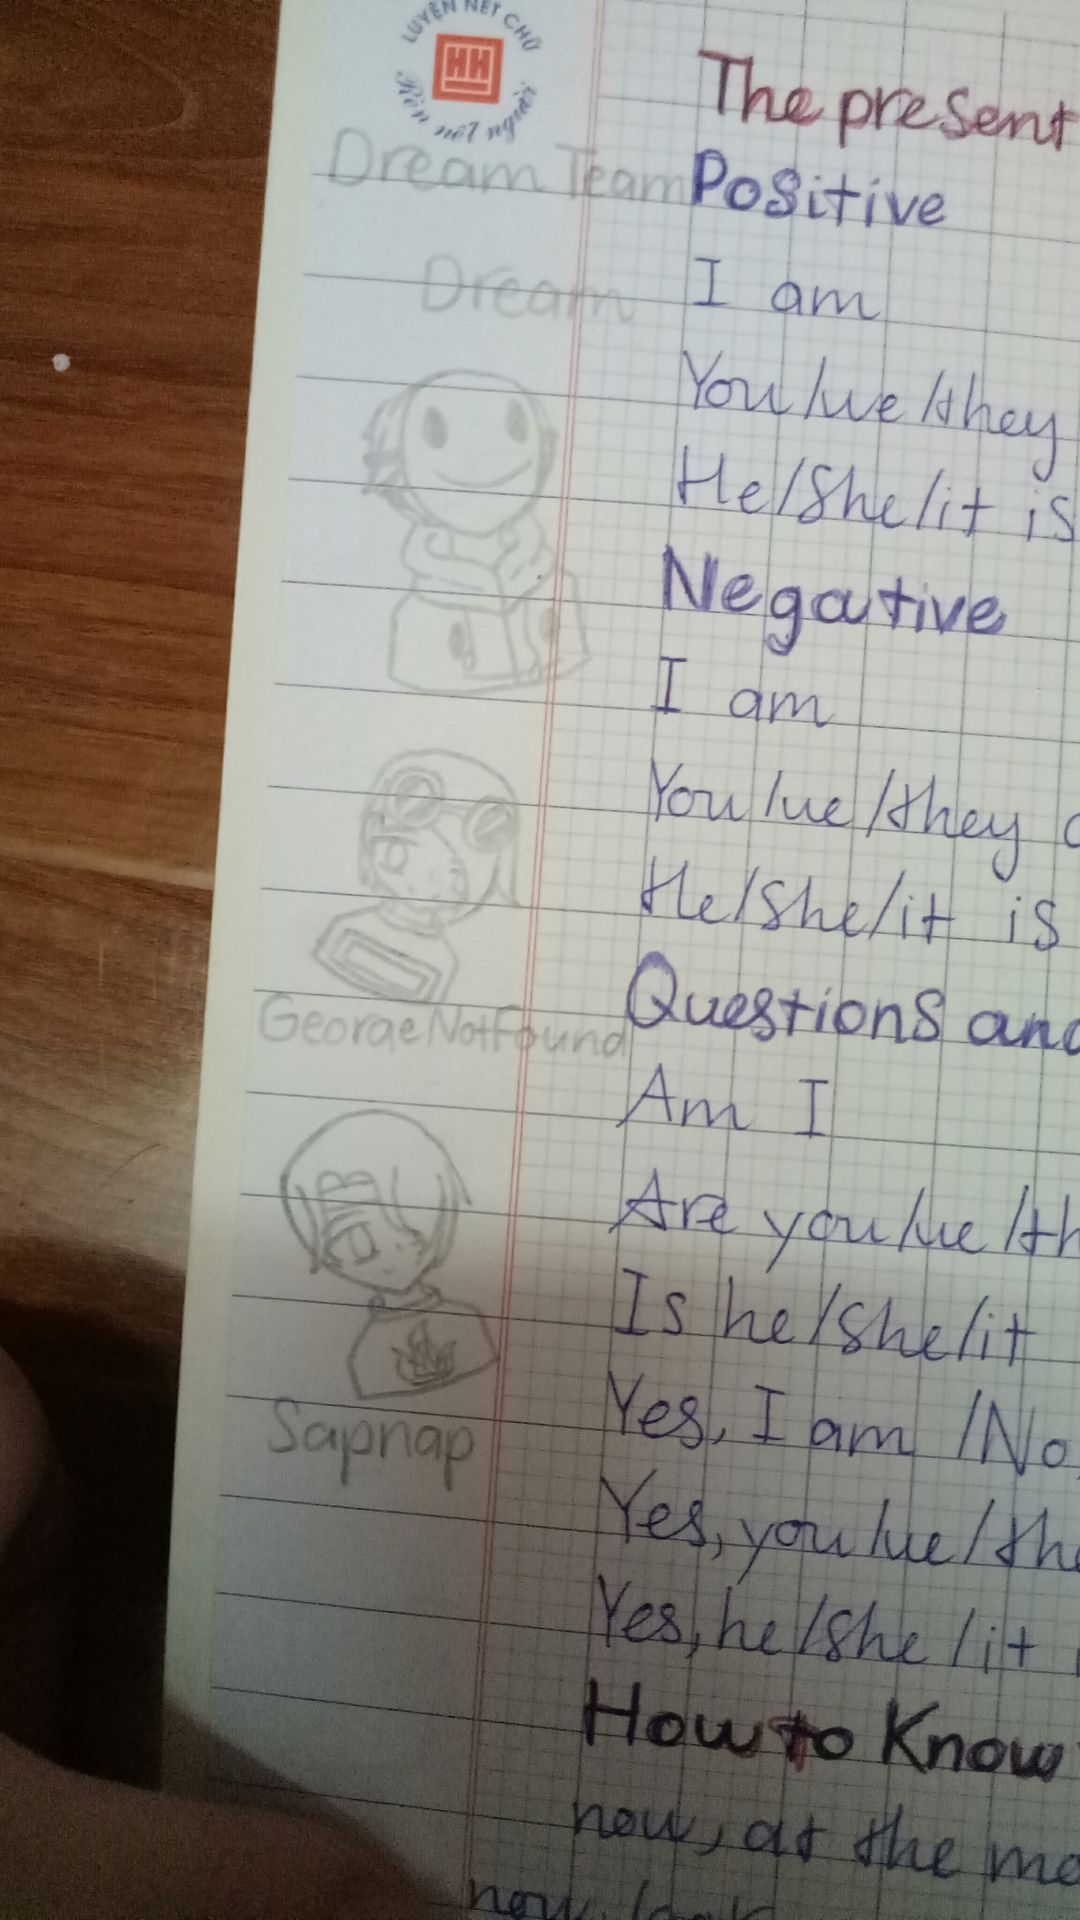 LUYỆN NÉT CHỮ
HH
Rèn nết người
The present
Dream Team
Positive
Dream
I am
You/we/they
He/She/it is
Negative
I am
You/we/they
He/She/it is
GeorgeNotFound
Questions and
Am I
Are you/we/th
Is he/She/it
Sapnap
Yes, I am /No,
Yes, you/we/the
Yes, he/She/it
How to Know
now, at the mo
now, look